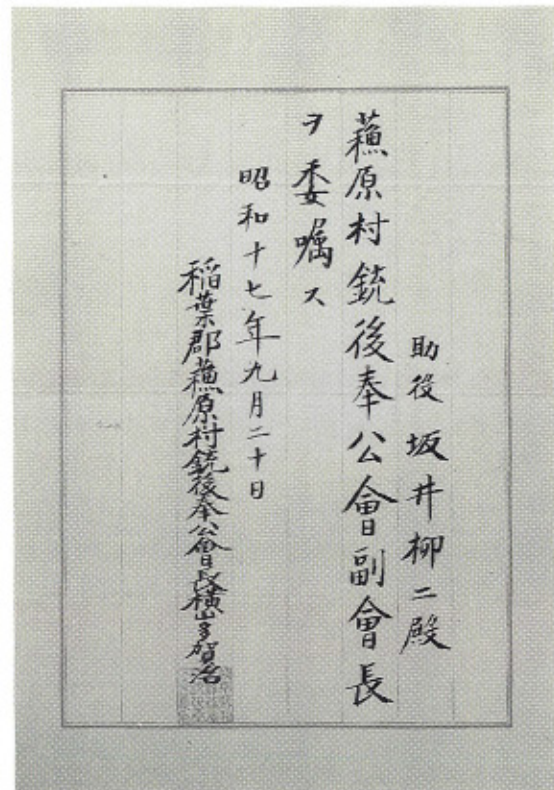 助役 坂井柳二殿
蘓原村銃後奉公會副會長
ヲ委嘱ス
昭和十七年九月二十日
稲葉郡蘓原村銃後奉公會長横山多賀治